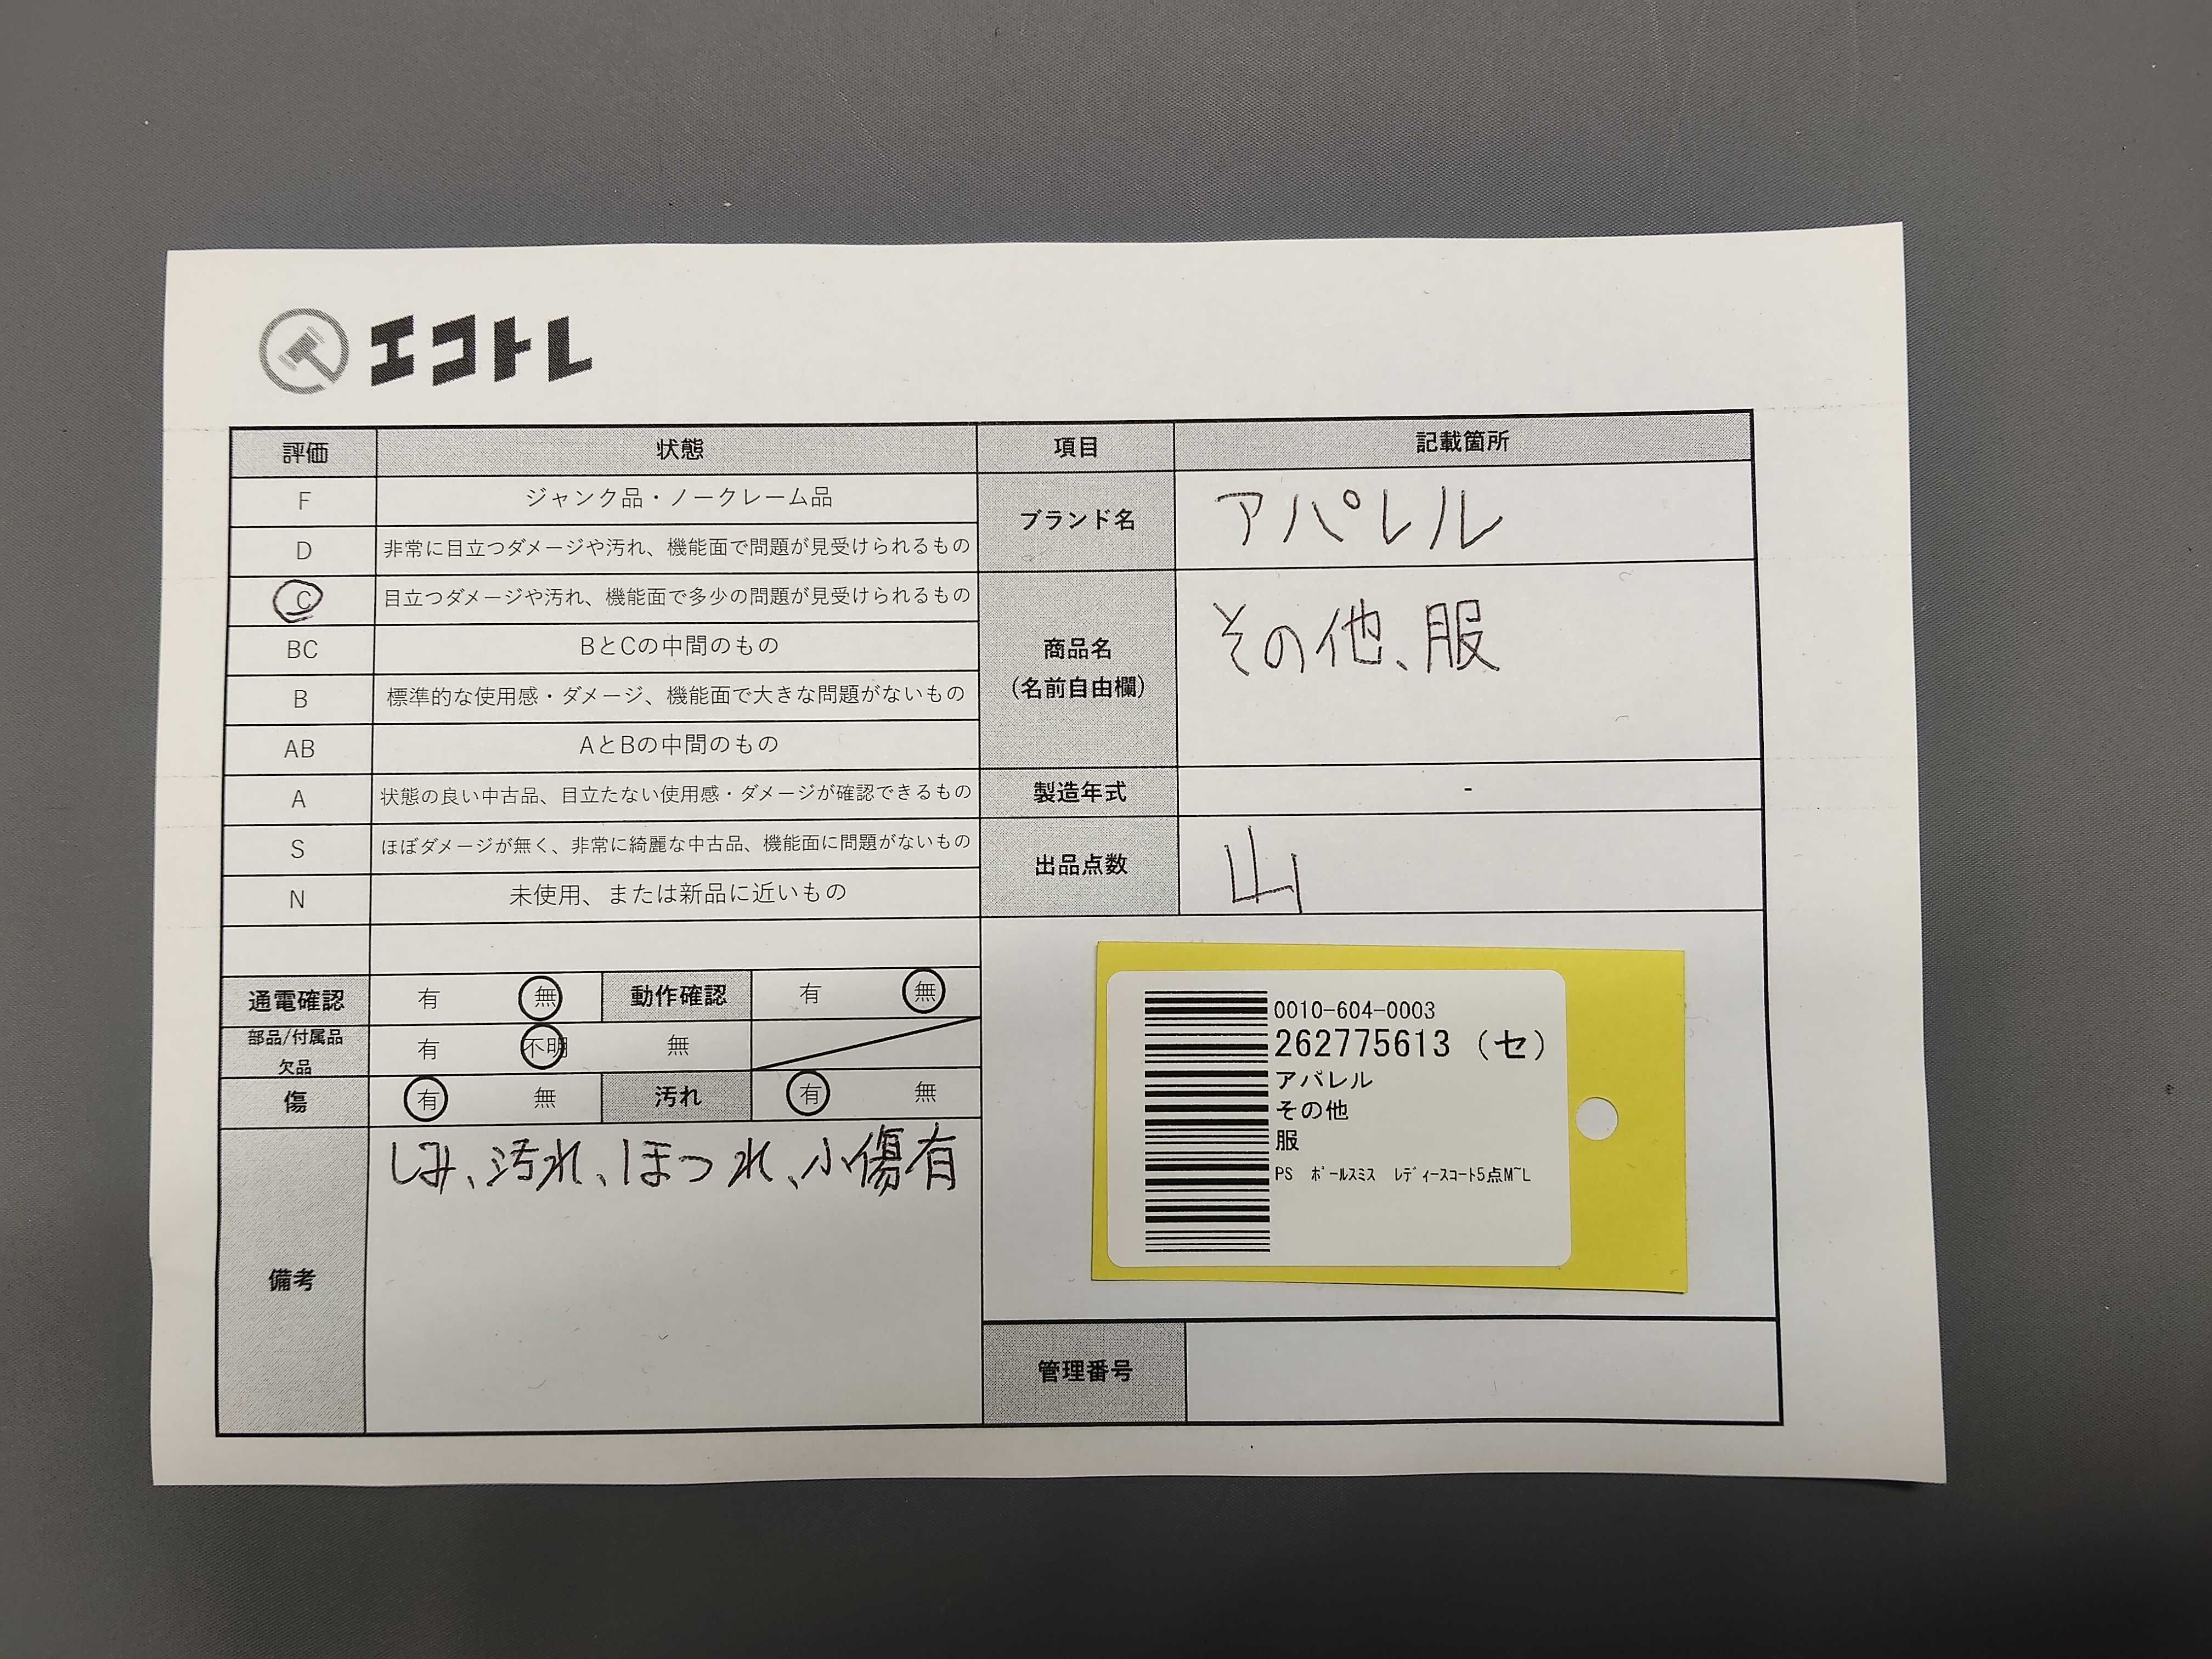 エコトレ
評価 状態 項目 記載箇所
F ジャンク品・ノークレーム品
D 非常に目立つダメージや汚れ、機能面で問題が見受けられるもの
C 目立つダメージや汚れ、機能面で多少の問題が見受けられるもの
BC BとCの中間のもの
B 標準的な使用感・ダメージ、機能面で大きな問題がないもの
AB AとBの中間のもの
A 状態の良い中古品、目立たない使用感・ダメージが確認できるもの
S ほぼダメージが無く、非常に綺麗な中古品、機能面に問題がないもの
N 未使用、または新品に近いもの
ブランド名 アパレル
商品名
（名前自由欄）
その他、服
製造年式 -
出品点数 山
通電確認 有 無 動作確認 有 無
部品/付属品
欠品
有 不明 無
傷 有 無 汚れ 有 無
備考 しみ、汚れ、ほつれ、小傷有
0010-604-0003
262775613（セ）
アパレル
その他
服
PS ﾎﾟｰﾙｽﾐｽ ﾚﾃﾞｨｰｽｺｰﾄ5点M~L
管理番号